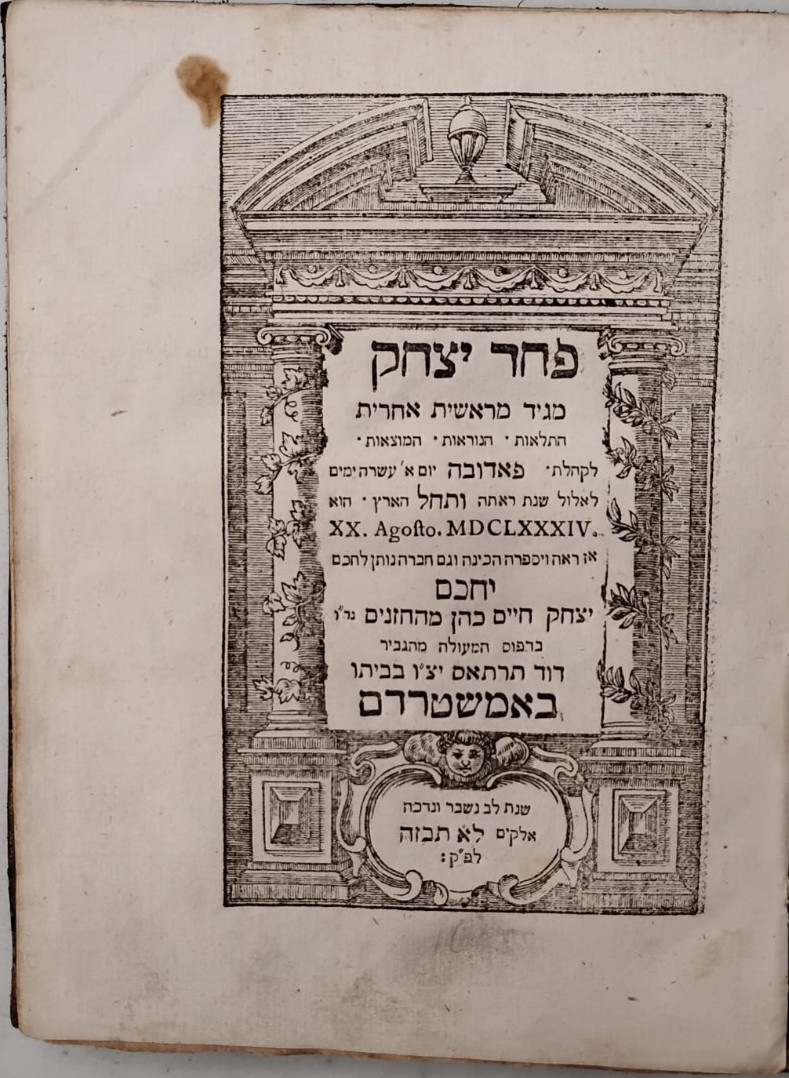 פחד יצחק
מגיד מראשית אחרית
התלאות · הנוראות · המוצאות ·
לקהלת · פאדובה יום א' עשרה ימים
לאלול שנת ראתה ותחל הארץ · הוא
XX. Agoſto. MDCLXXXIV.
אז ראה ויספרה הכינה וגם חברה נותן לחכם
יחכם
יצחק חיים כהן מהחזנים נר"ו
ברפוס המעולה מהגביר
דוד תרתאס יצ"ו בביתו
באמשטרדם
שנת לב נשבר ונדכה
אלקים לא תבזה
לפ"ק: